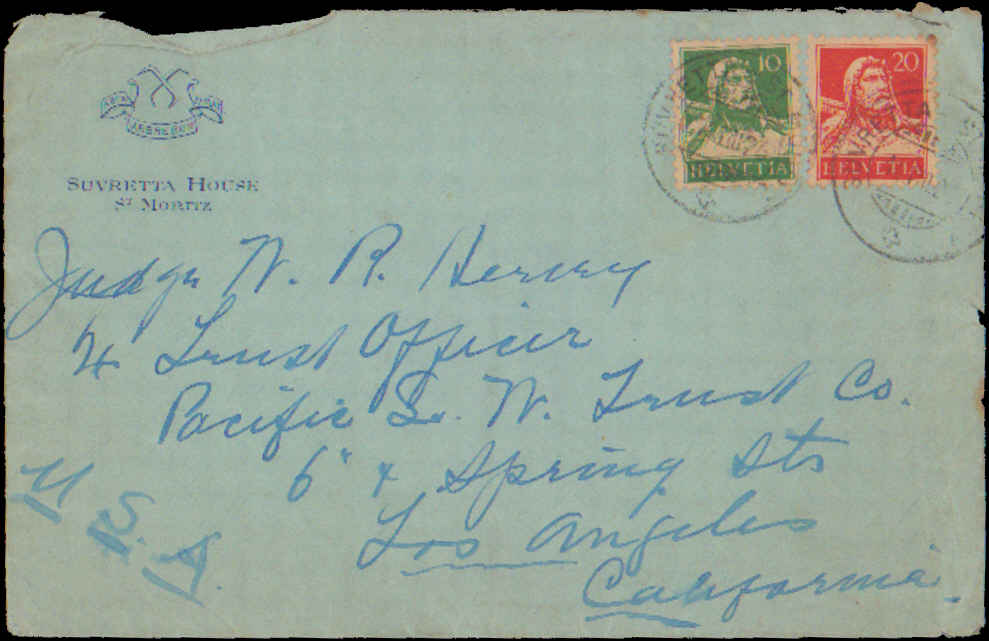 SUVRETTA HOUSE
ST MORITZ
10
HELVETIA
20
HELVETIA
Judge W. R. Hervey
Trust Officer
Pacific So. W. Trust Co.
6" & Spring Sts
Los Angeles
California.
U.S.A.